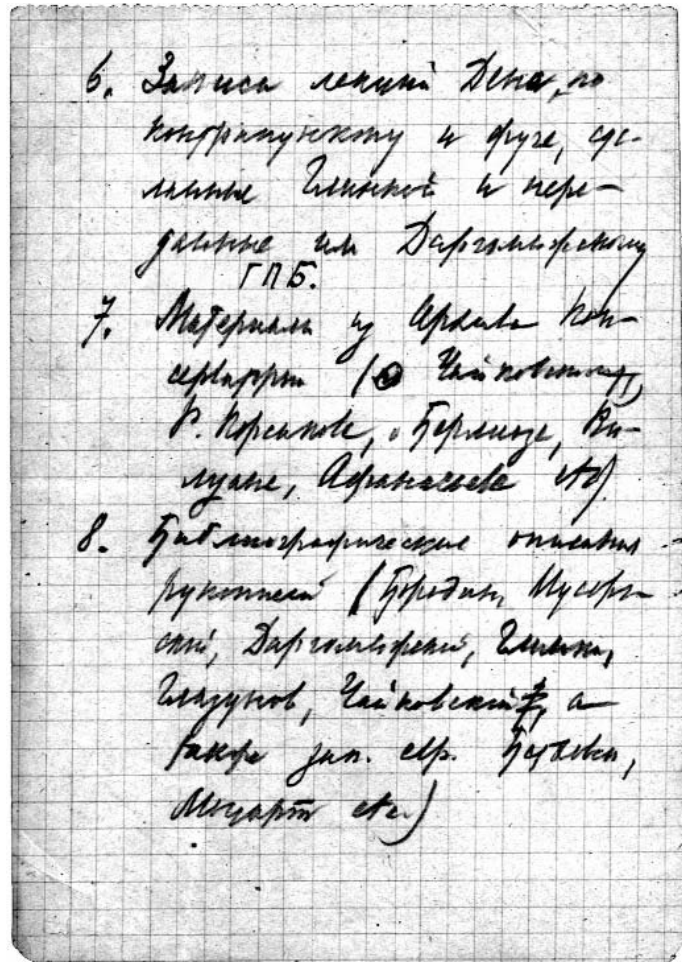 6. Записи лекций Дена, по
контрапункту и фуге, сде-
ланные Глинкой и пере-
данные им Даргомыжскому
ГПБ.
7. Материалы из Архива Кон-
серватории (о Чайковском,
Р. Корсакове, о Берлиозе,
Афанасьеве etc)
8. Библиографические описания
рукописей (Бородин, Мусорг-
ский, Даргомыжский, Глинка,
Глазунов, Чайковский, а
также зап. евр. Бетховен,
Моцарт etc.)